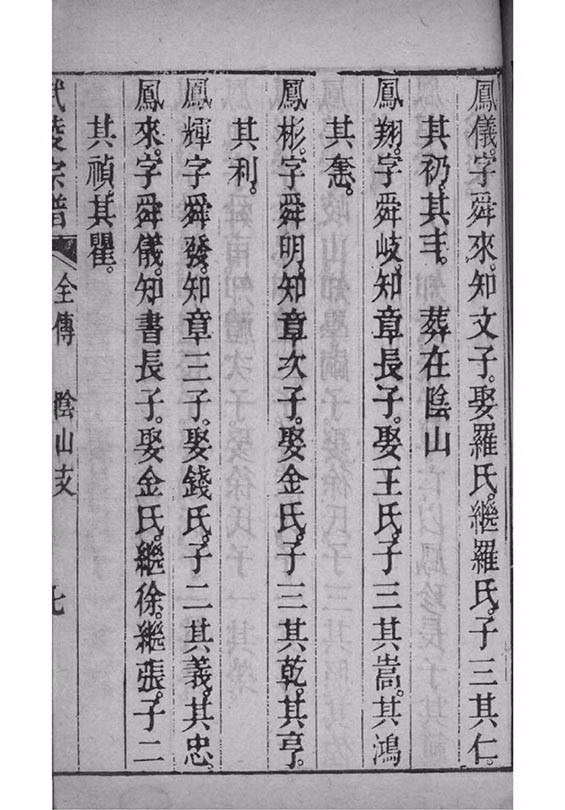 鳳儀。字舜來。知文子。娶羅氏。繼羅氏。子三其仁。
其礽。其丰。 葬在陰山
鳳翔。字舜岐。知章長子。娶王氏。子三其嵩。其鴻
其
鳳彬。字舜明。知章次子。娶金氏。子三其乾。其亨。
其利。
鳳輝字舜發。知章三子。娶錢氏。子二其義。其忠。
鳳來。字舜儀。知書長子。娶金氏。繼徐。繼張。子二
其禎。其瞿。
武陵宗譜 全傳 陰山支 七